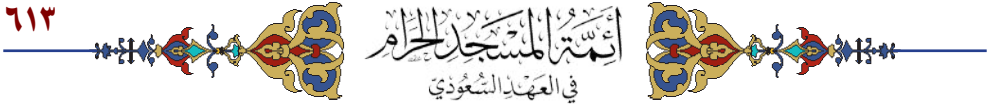 ٦١٣
أَئِمَّةُ المَسْجِدِ الحَرَامِ
فِي العَهْدِ السُّعُودِيِّ